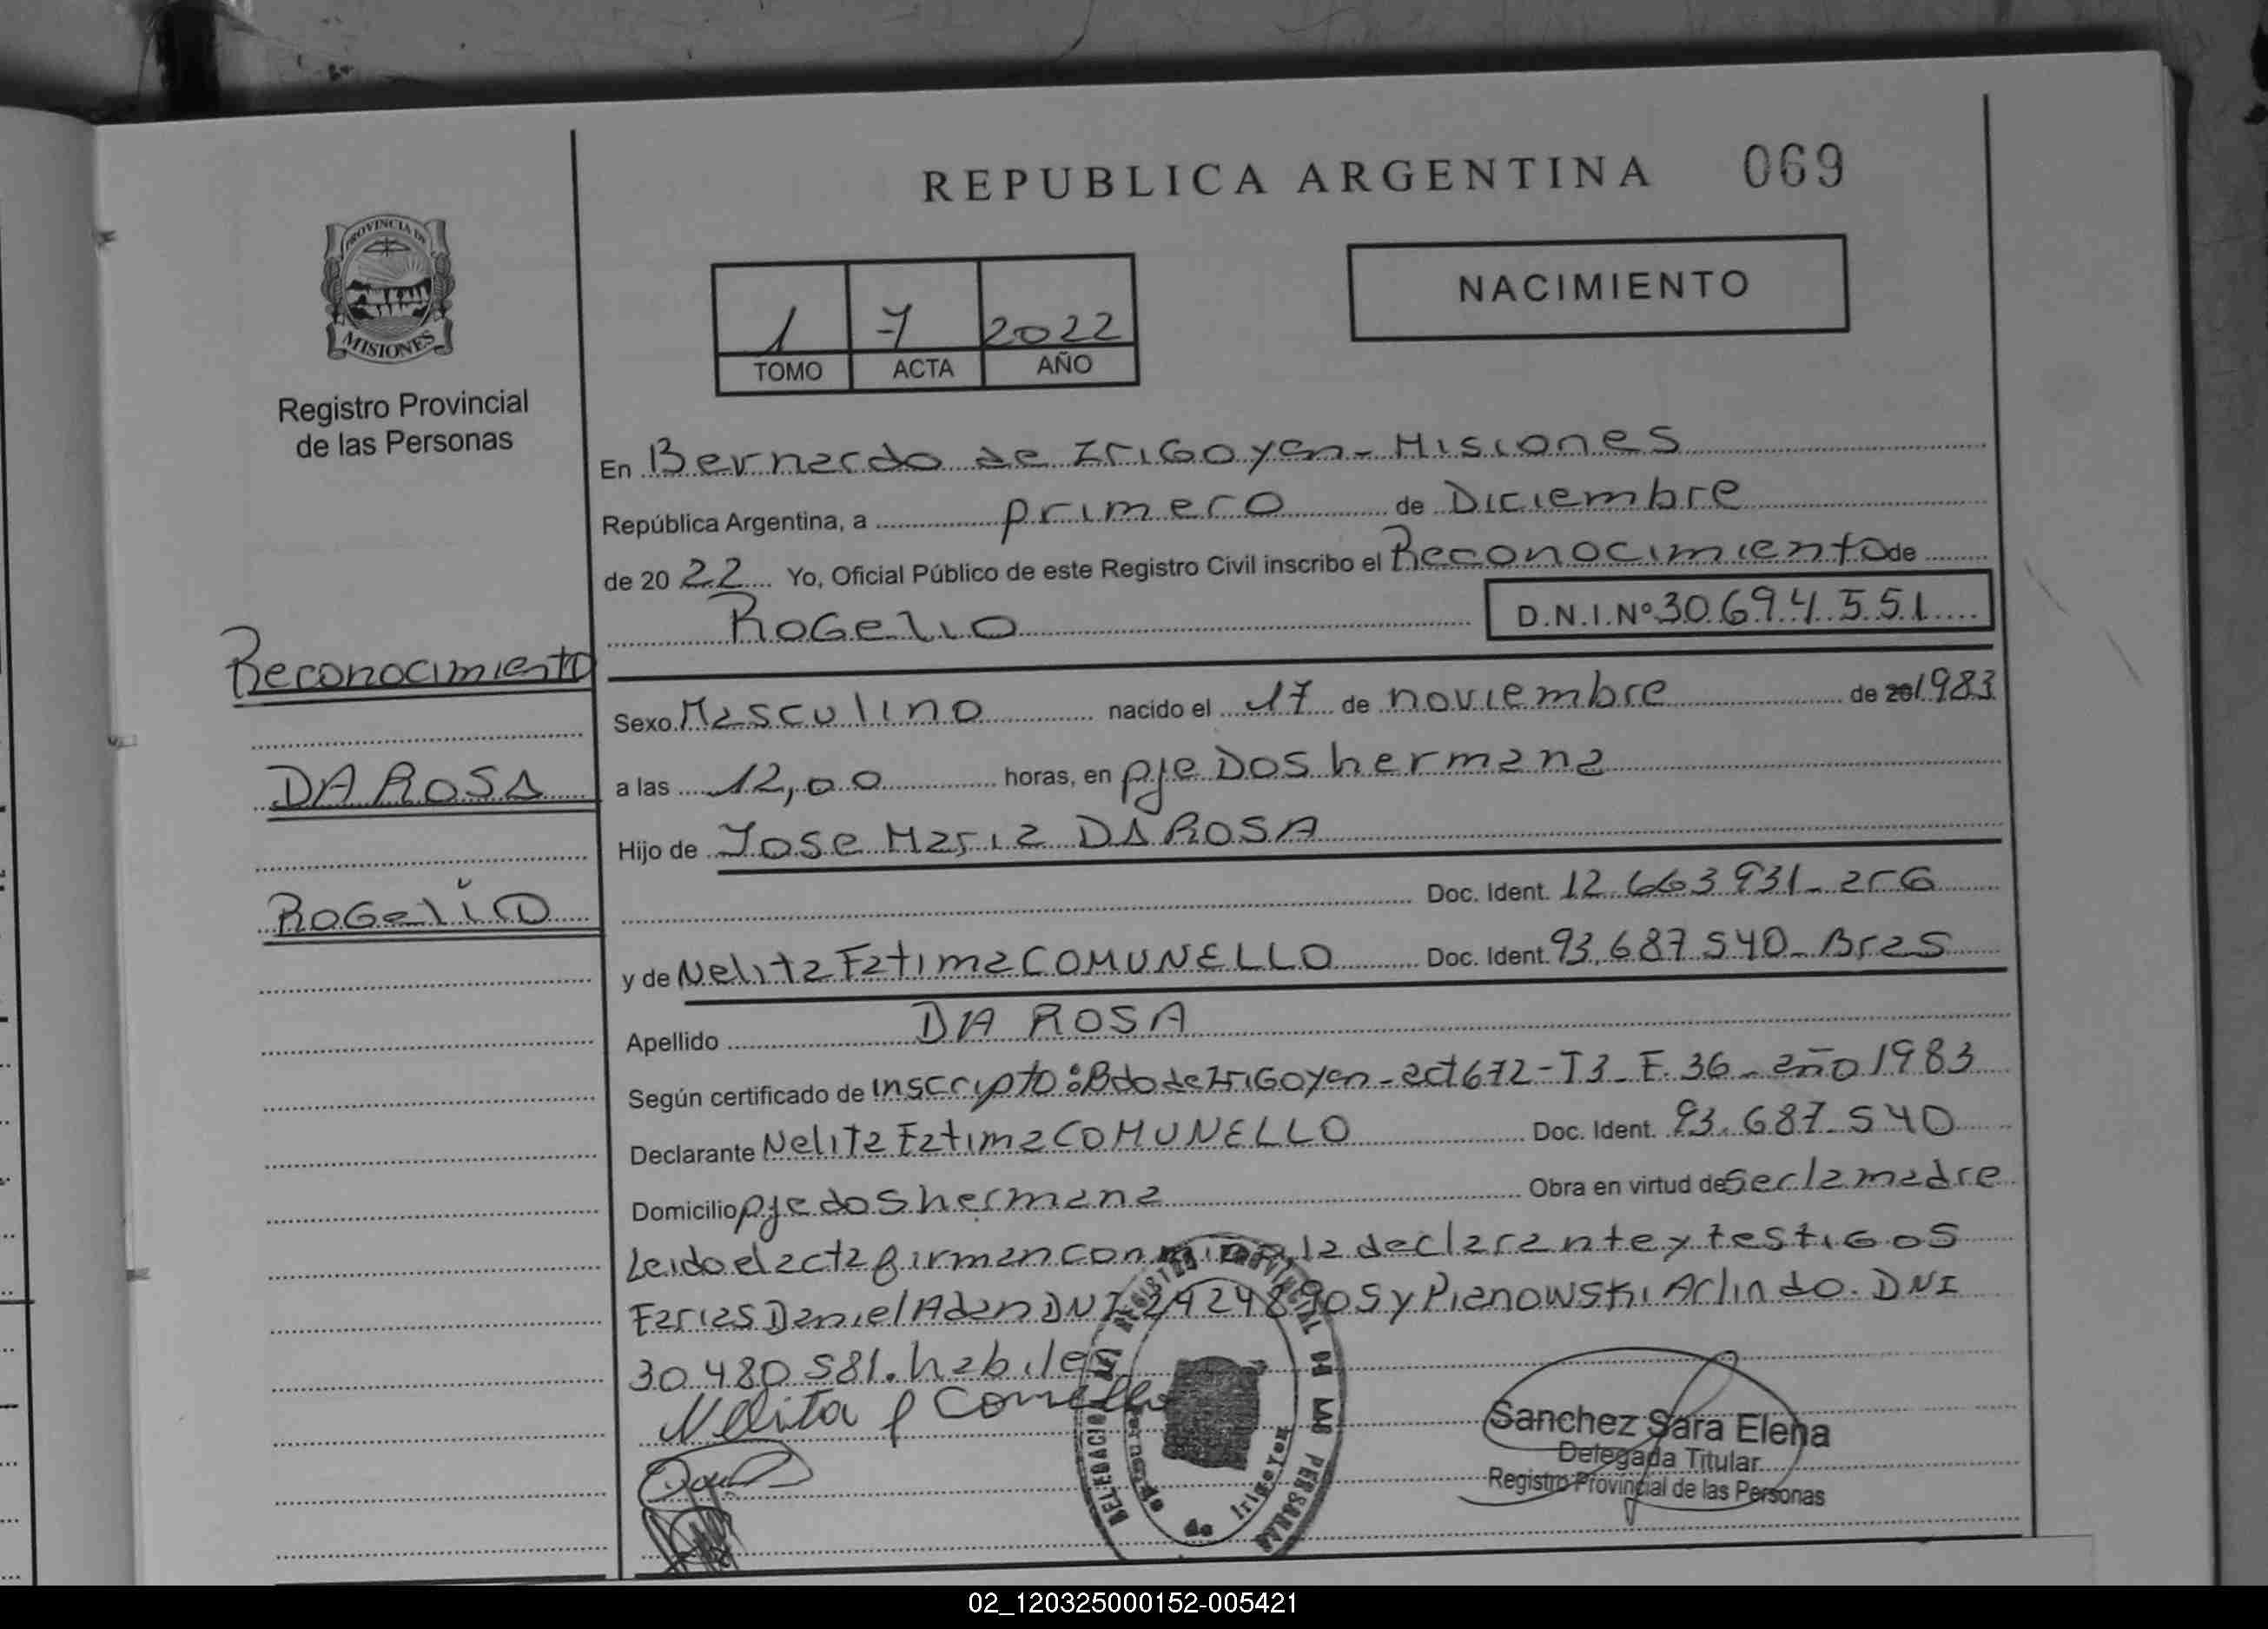 REPUBLICA ARGENTINA 069
PROVINCIA DE
MISIONES
Registro Provincial
de las Personas
NACIMIENTO
1 7 2022
TOMO ACTA AÑO
En Bernardo de Irigoyen - Misiones
República Argentina, a primero de Diciembre
de 2022 Yo, Oficial Público de este Registro Civil inscribo el Reconocimiento de
Rogelio D.N.I.Nº 30694551
Reconocimiento
DA ROSA
ROGeliO
Sexo Masculino nacido el 17 de noviembre de 20 1983
a las 12,00 horas, en pje Dos hermana
Hijo de Jose Maria DA ROSA
Doc. Ident. 12.663931-arG
y de Nelita Fatima COMUNELLO Doc. Ident. 93.687540-Bras
Apellido DA ROSA
Según certificado de inscripto: Bdo de IriGoyen - act 672 - T3 - F. 36 - año 1983
Declarante Nelita Fatima COMUNELLO Doc. Ident. 93.687.540
Domicilio pje dos hermana Obra en virtud de Ser la madre
Leido el acta firman con migo la declarante y testiGos
Farias Daniel Adan DNI 24248905 y Pianowski Arlindo. DNI
30480581. habiles
Nelita f
Sanchez Sara Elena
Delegada Titular
Registro Provincial de las Personas
DELEGACION DEL REGISTRO PROVINCIAL DE LAS PERSONAS
Bernardo de Irigoyen
02_120325000152-005421